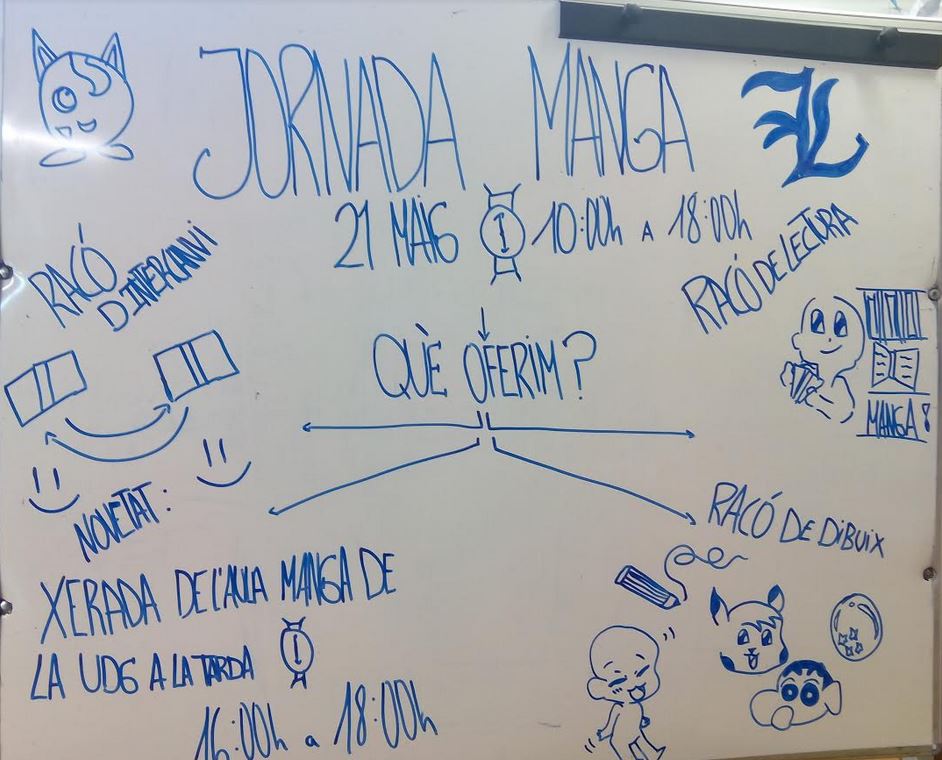 JORNADA MANGA
L
21 MAIG 10:00h A 18:00h
RACÓ
D'INTERCANVI
RACÓ DE LECTURA
QUÈ OFERIM?
MANGA!
NOVETAT:
XERADA DE L'AULA MANGA DE
LA UDG A LA TARDA
16:00h a 18:00h
RACÓ DE DIBUIX